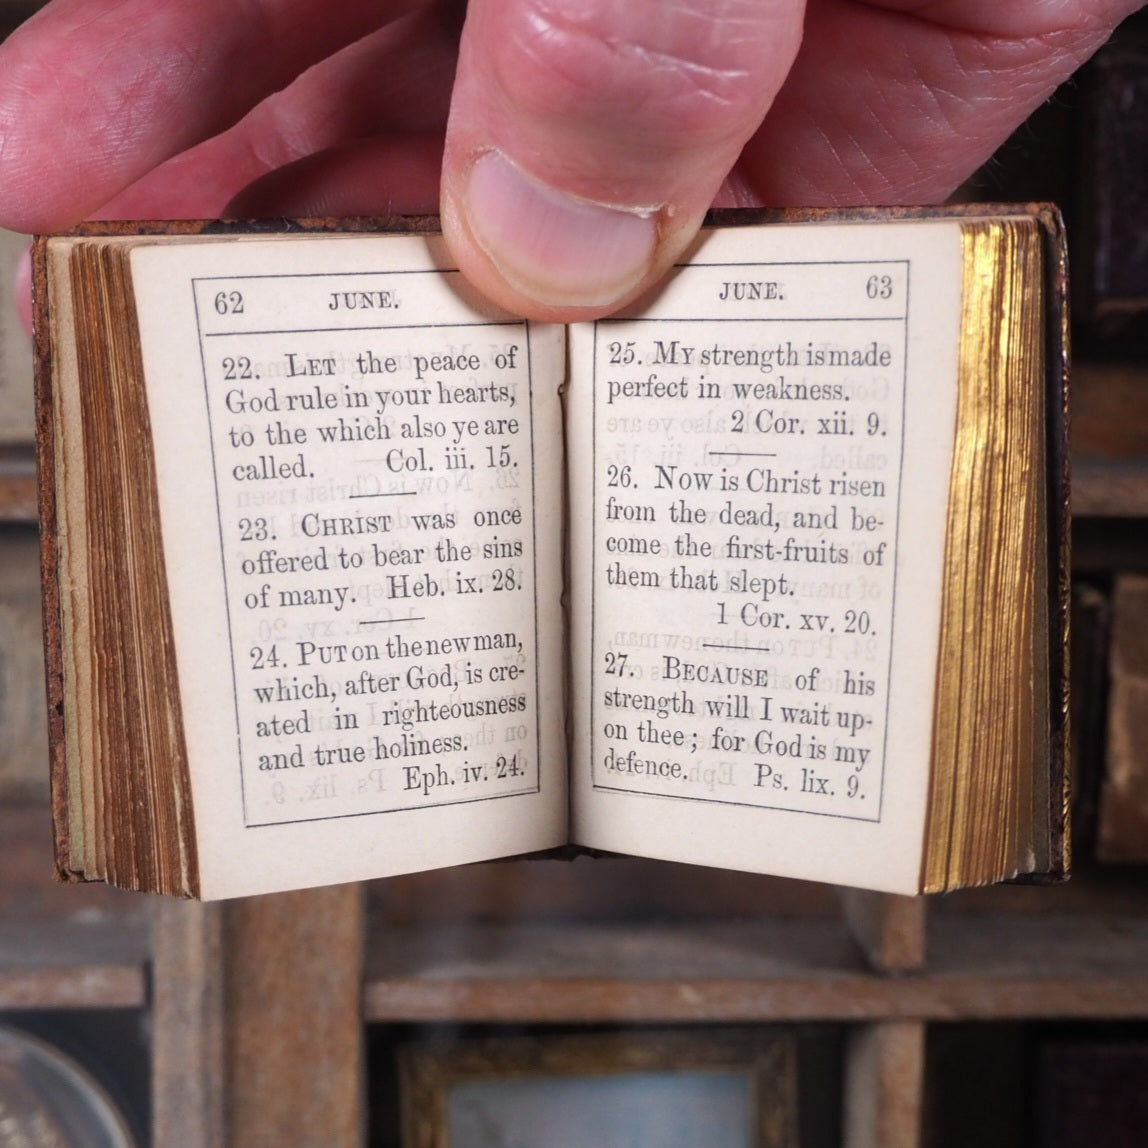 62 JUNE.
22. LET the peace of
God rule in your hearts,
to the which also ye are
called. Col. iii. 15.
23. CHRIST was once
offered to bear the sins
of many. Heb. ix. 28.
24. PUT on the new man,
which, after God, is cre-
ated in righteousness
and true holiness.
Eph. iv. 24.
JUNE. 63
25. MY strength is made
perfect in weakness.
2 Cor. xii. 9.
26. NOW is Christ risen
from the dead, and be-
come the first-fruits of
them that slept.
1 Cor. xv. 20.
27. BECAUSE of his
strength will I wait up-
on thee; for God is my
defence. Ps. lix. 9.